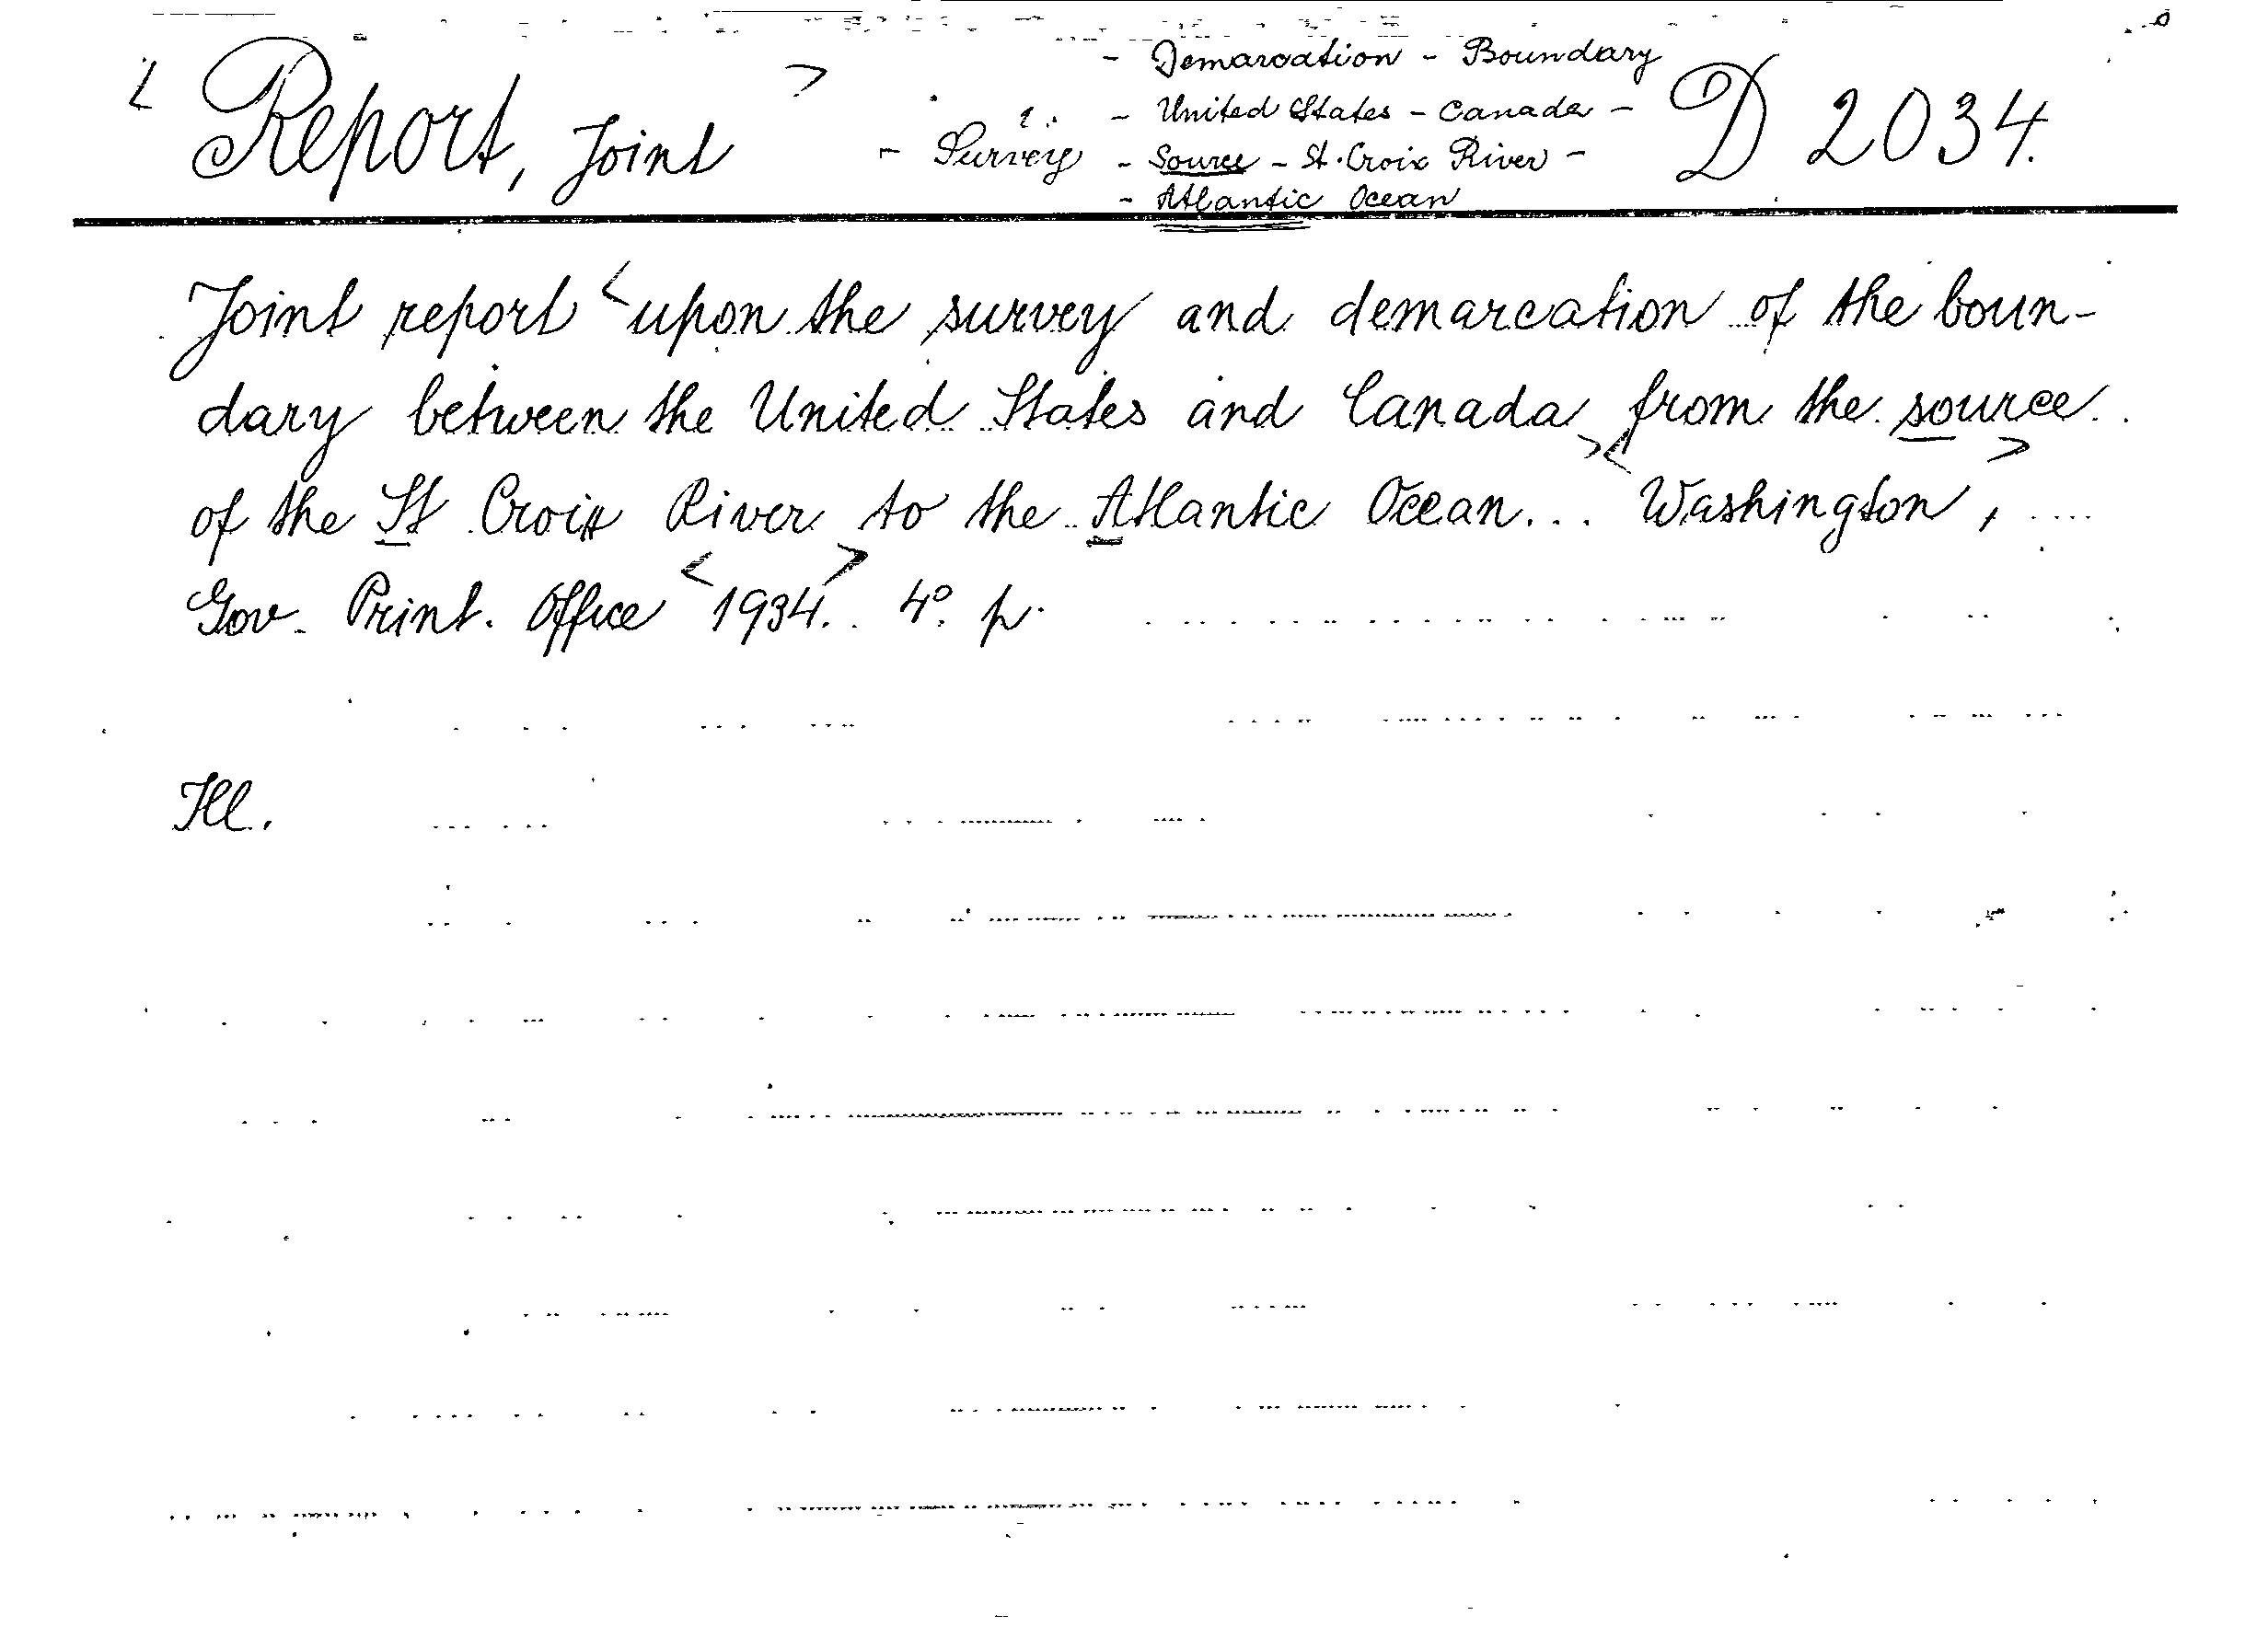 - Demarcation - Boundary
< Report, Joint > - Survey - United States - Canada - D 2034.
- Source - St. Croix River -
- Atlantic Ocean
Joint report < upon the survey and demarcation of the boun-
dary between the United States and Canada > < from the source
of the St Croix River to the Atlantic Ocean... > Washington,
Gov. Print. Office < 1934. > 4°. p.
Ill.